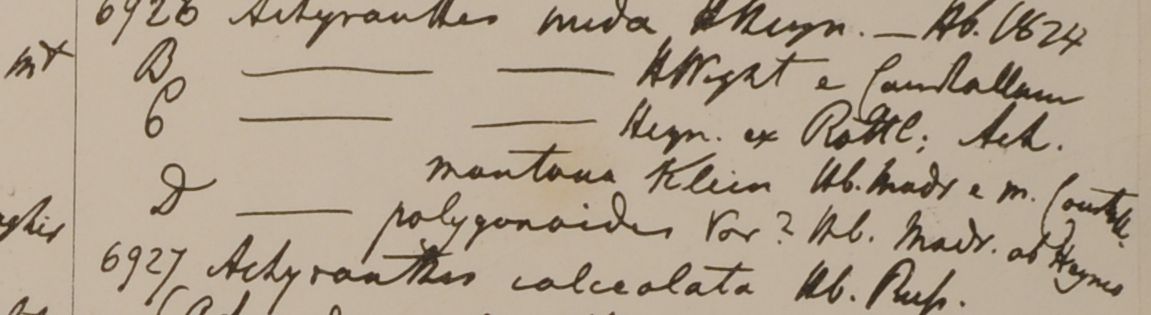 6926 Achyranthes nuda HHeyn. — Hb. 1824
mt B — — HWight e Courtallum
C — — Heyn. ex Rottl; Ach.
montana Klein Hb. Madr e m. Courtall.
D — polygonoides Var? Hb. Madr. ab Heyneo
6927 Achyranthes calceolata Hb. Russ.